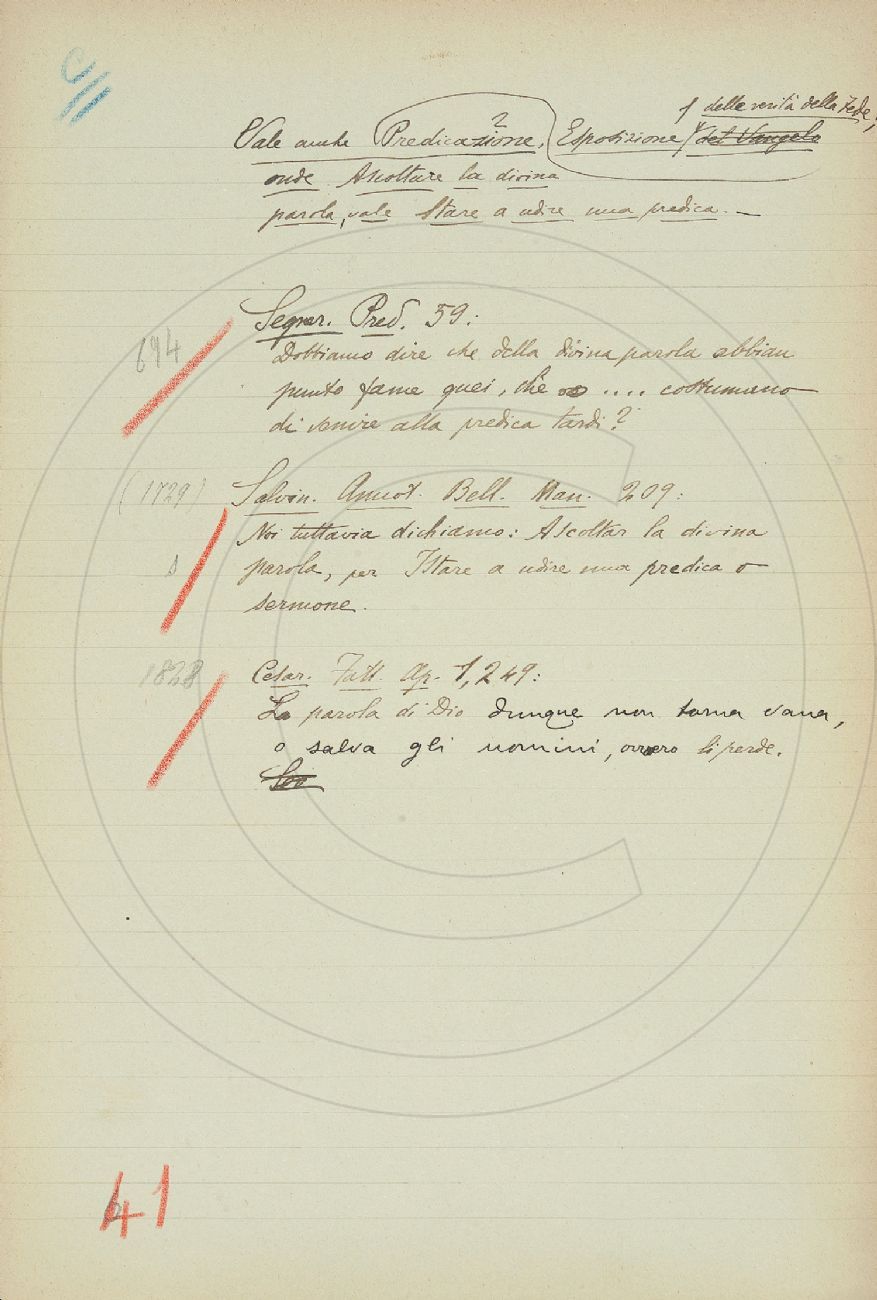 C
1 delle verità della Fede;
2
Vale anche Predicazione, Esposizione del Vangelo
onde Ascoltare la divina
parola, vale Stare a udire una predica. —
694
Segner. Pred. 59:
Dobbiamo dire che della divina parola abbian
punto fame quei, che .... costumano
di venire alla predica tardi?
(1729)
Salvin. Annot. Bell. Man. 209:
Noi tuttavia dichiamo: Ascoltar la divina
parola, per Istare a udire una predica o
sermone.
1828
Cesar. Fatt. Ap. 1, 249:
La parola di Dio dunque non torna vana,
o salva gli uomini, ovvero li perde.
41